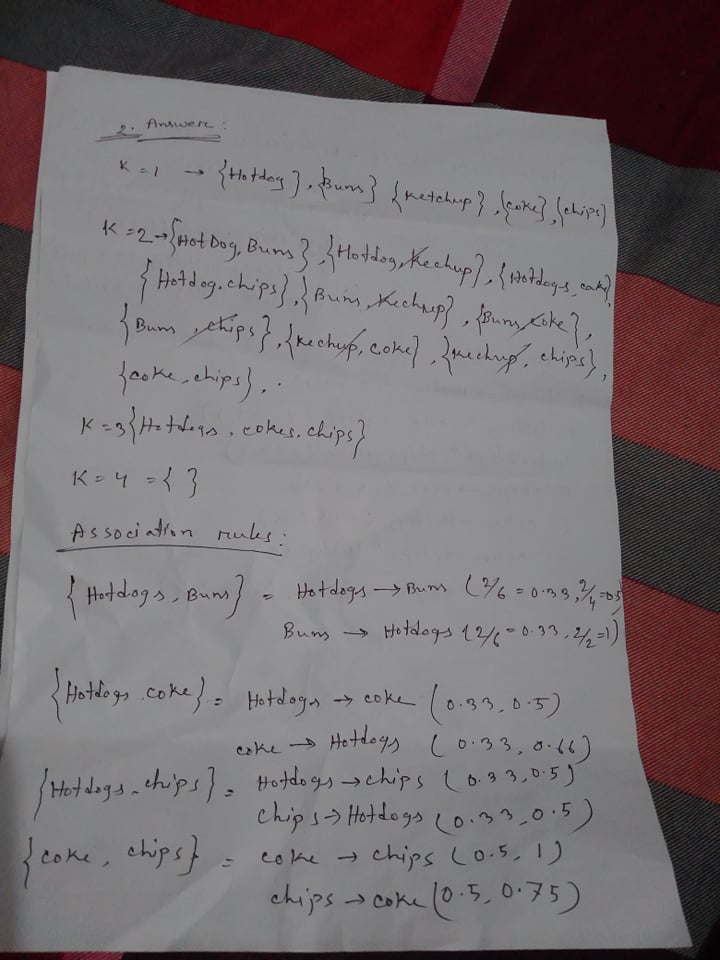 2. Answer:
K=1 → {Hotdog}, {Buns} {Ketchup}, {coke}, {chips}
K=2→{HotDog, Buns}, {Hotdog, Kechup}, {Hotdogs, coke},
{Hotdog. chips}, {Buns, Kechup}, {Buns, coke},
{Buns, chips}, {Kechup, coke}, {Kechup, chips},
{coke, chips}, .
K=3{Hotdogs, cokes, chips}
K=4 = { }
Association rules:
{Hotdogs, Buns} = Hotdogs → Buns (2/6 = 0.33, 2/4=0.5)
Buns → Hotdogs (2/6=0.33, 2/2=1)
{Hotdogs, coke} = Hotdogs → coke (0.33, 0.5)
coke → Hotdogs (0.33, 0.66)
{Hotdogs, chips} = Hotdogs → chips (0.33, 0.5)
chips → Hotdogs (0.33, 0.5)
{coke, chips} = coke → chips (0.5, 1)
chips → coke (0.5, 0.75)